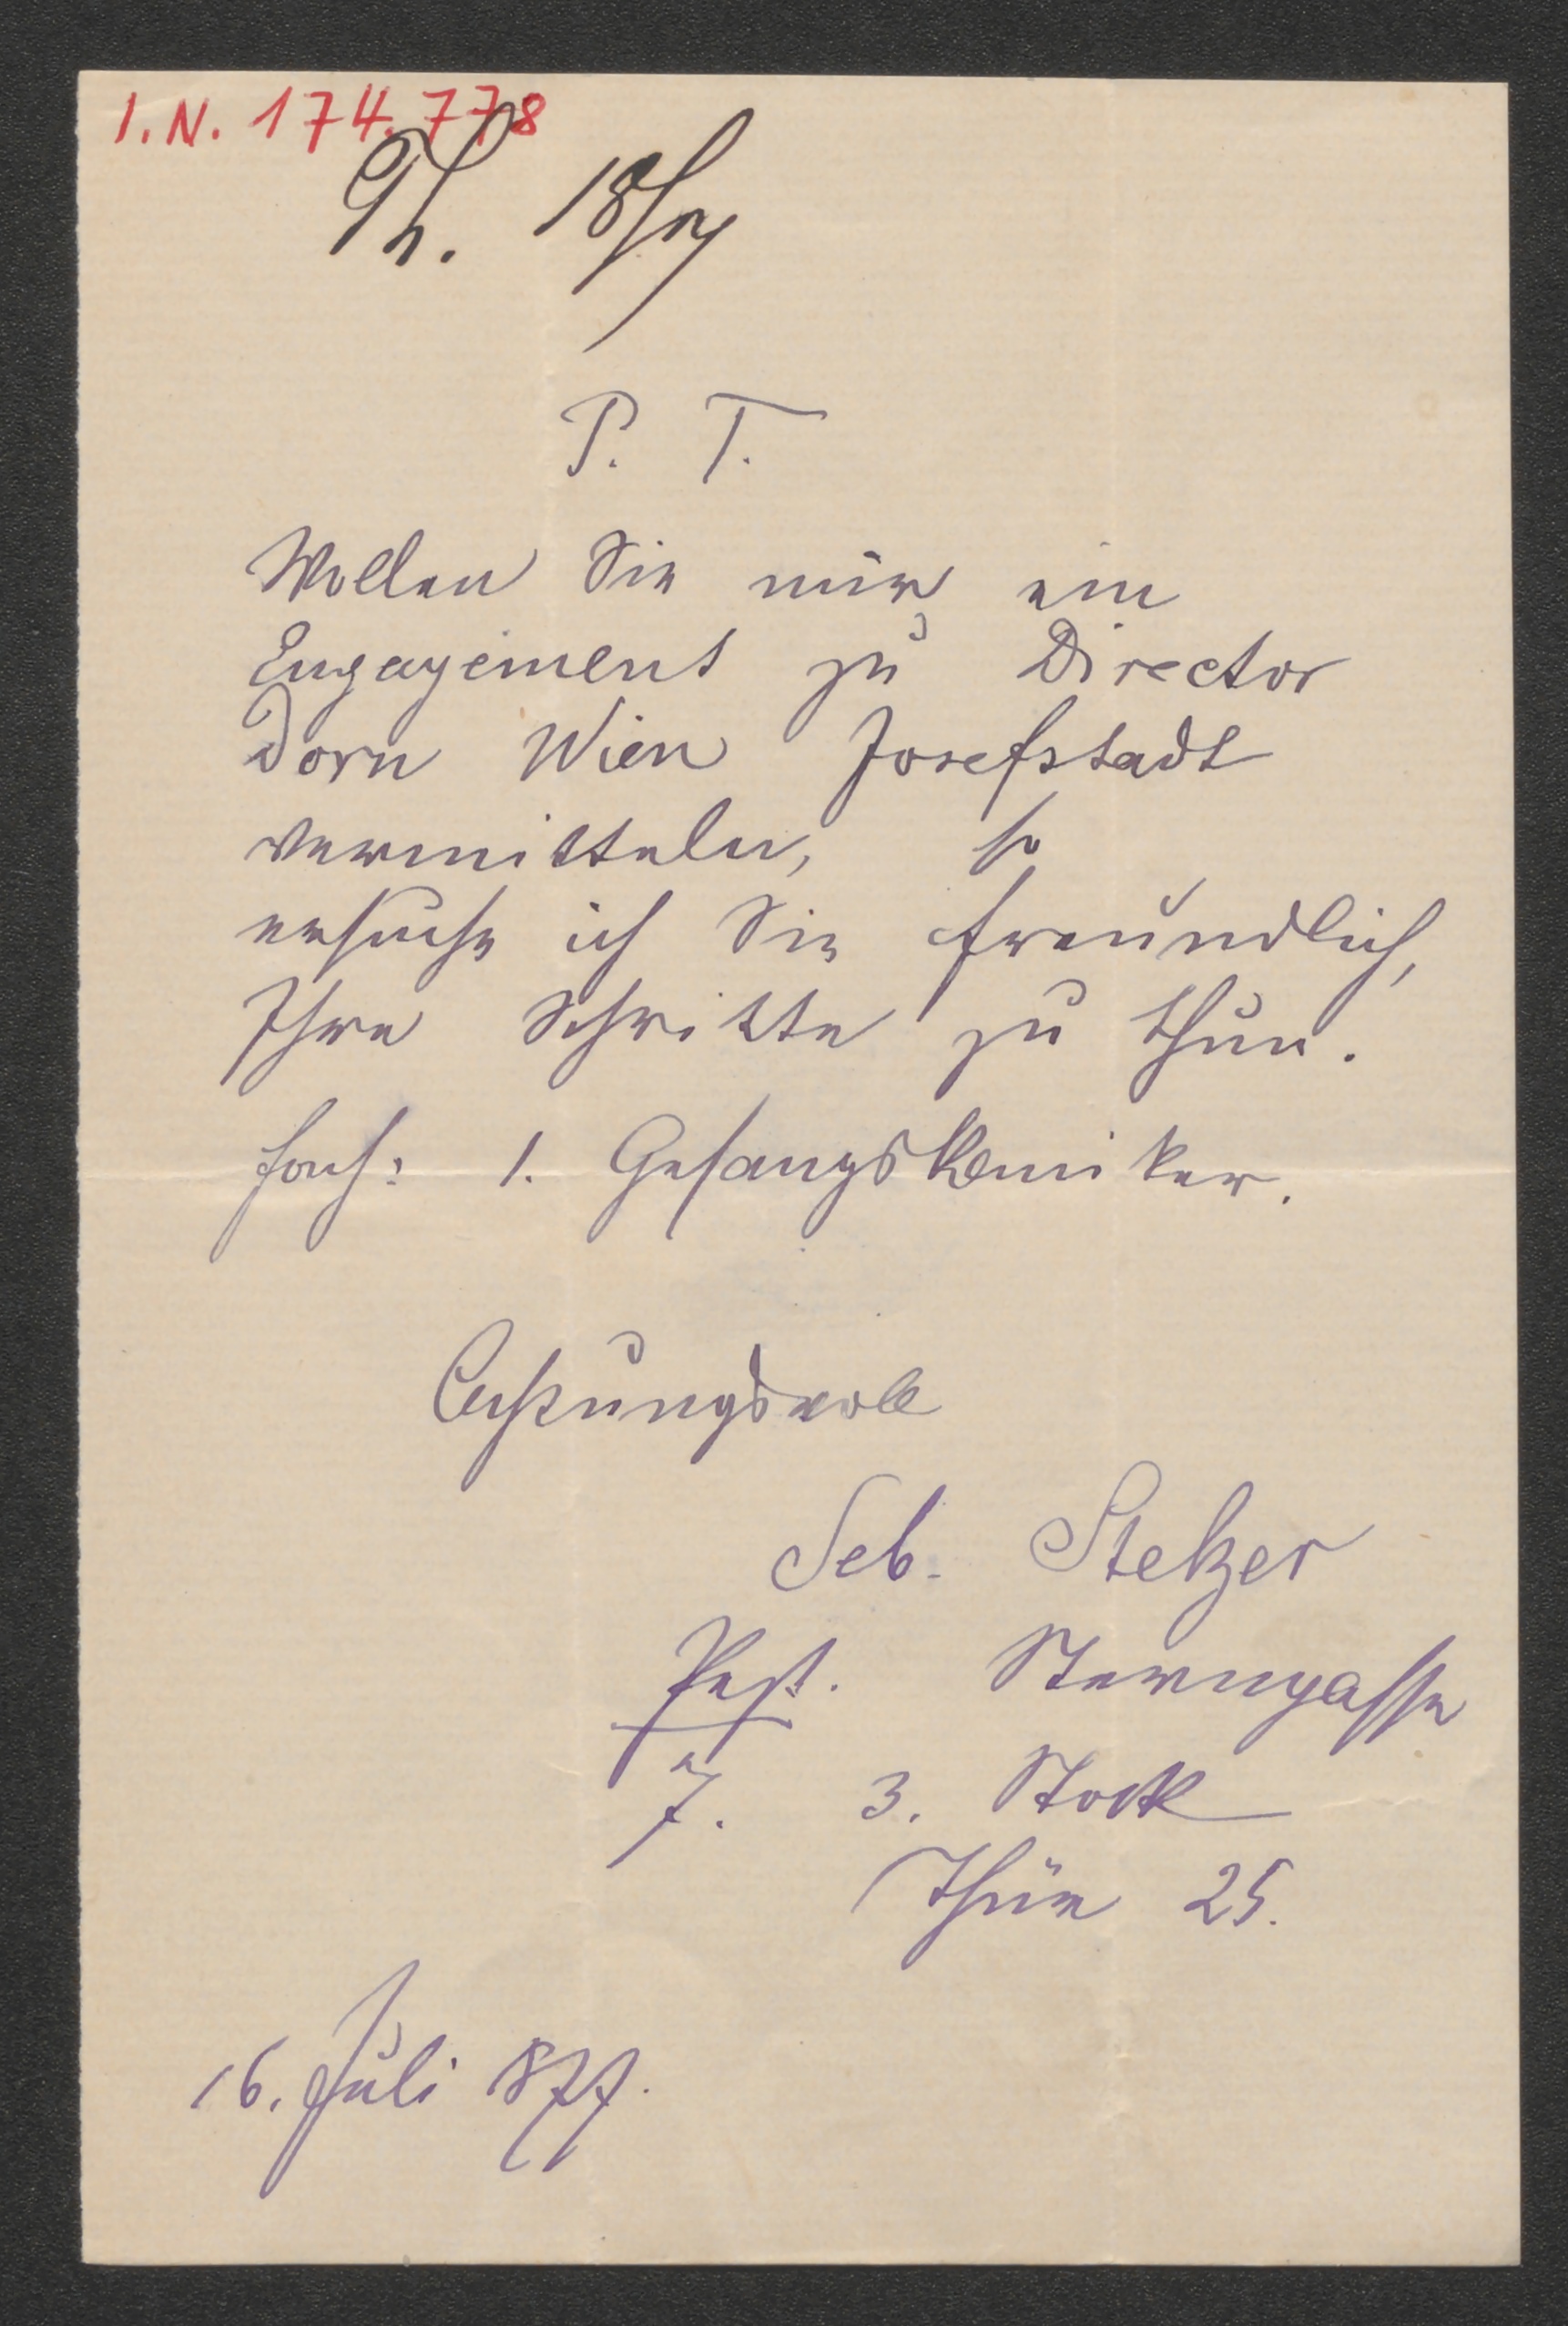 I.N. 174.778
Th. 18/7
P. T.
Wollen Sie mir ein
Engagement zu Director
Dorn Wien Josefstadt
vermitteln, so
ersuche ich Sie freundlich,
Ihre Schritte zu thun.
Fach: 1. Gesangskomiker.
Achtungsvoll
Seb. Stelzer
Pest. Sterngasse
7. 3. Stock
Thür 25.
16. Juli 877.